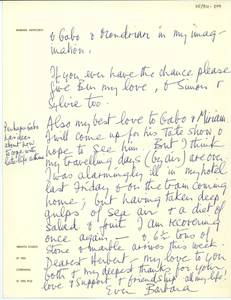 BARBARA HEPWORTH
& Gabo & Mondrian in my imag-
ination.
If you ever have the chance please
give Ben my love, & Simon &
Sylvie too.
Also my best love to Gabo & Miriam
I will come up for his Tate show &
hope to see him. But I think
my travelling days (by air) are over
I was alarmingly ill in my hotel
last Friday & on the train coming
home; but having taken deep
gulps of sea air & a diet of
salad & fruit I am recovering
once again — & 6½ tons of
stone & marble arrives this week.
Dearest Herbert — my love to you
both & my deepest thanks for your
love & support & friendship all my life!
Ever Barbara
Perhaps Gabo
has ideas
about how
to cope with
TREWYN STUDIO
ST IVES
CORNWALL